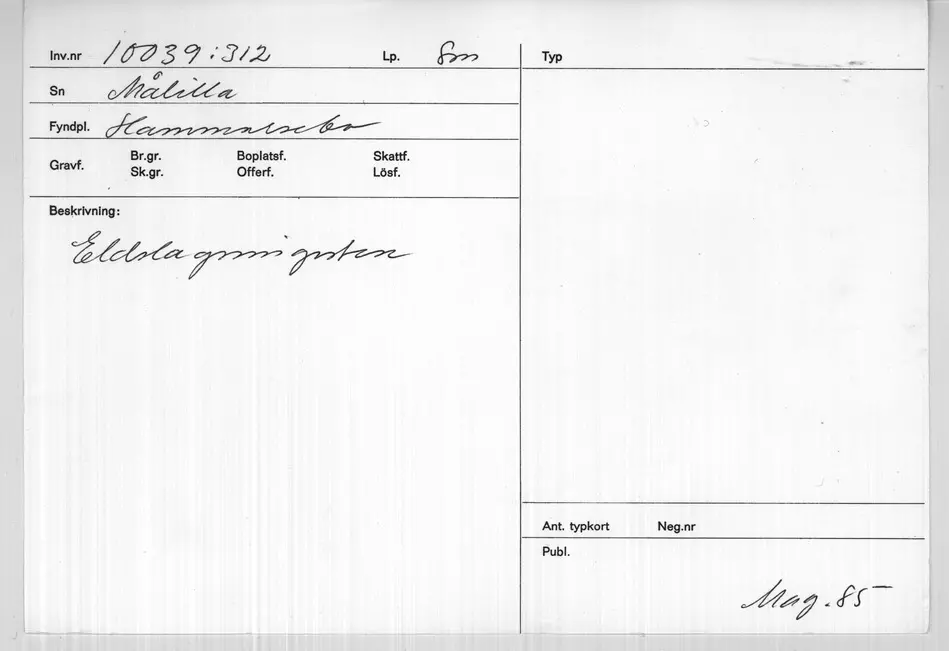 Inv.nr 10039:312 Lp. Sm
Sn Målilla
Fyndpl. Hammarsebo
Gravf. Br.gr. Boplatsf. Skattf.
Sk.gr. Offerf. Lösf.
Beskrivning:
Eldslagningsten
Typ
Ant. typkort Neg.nr
Publ.
Mag. 85